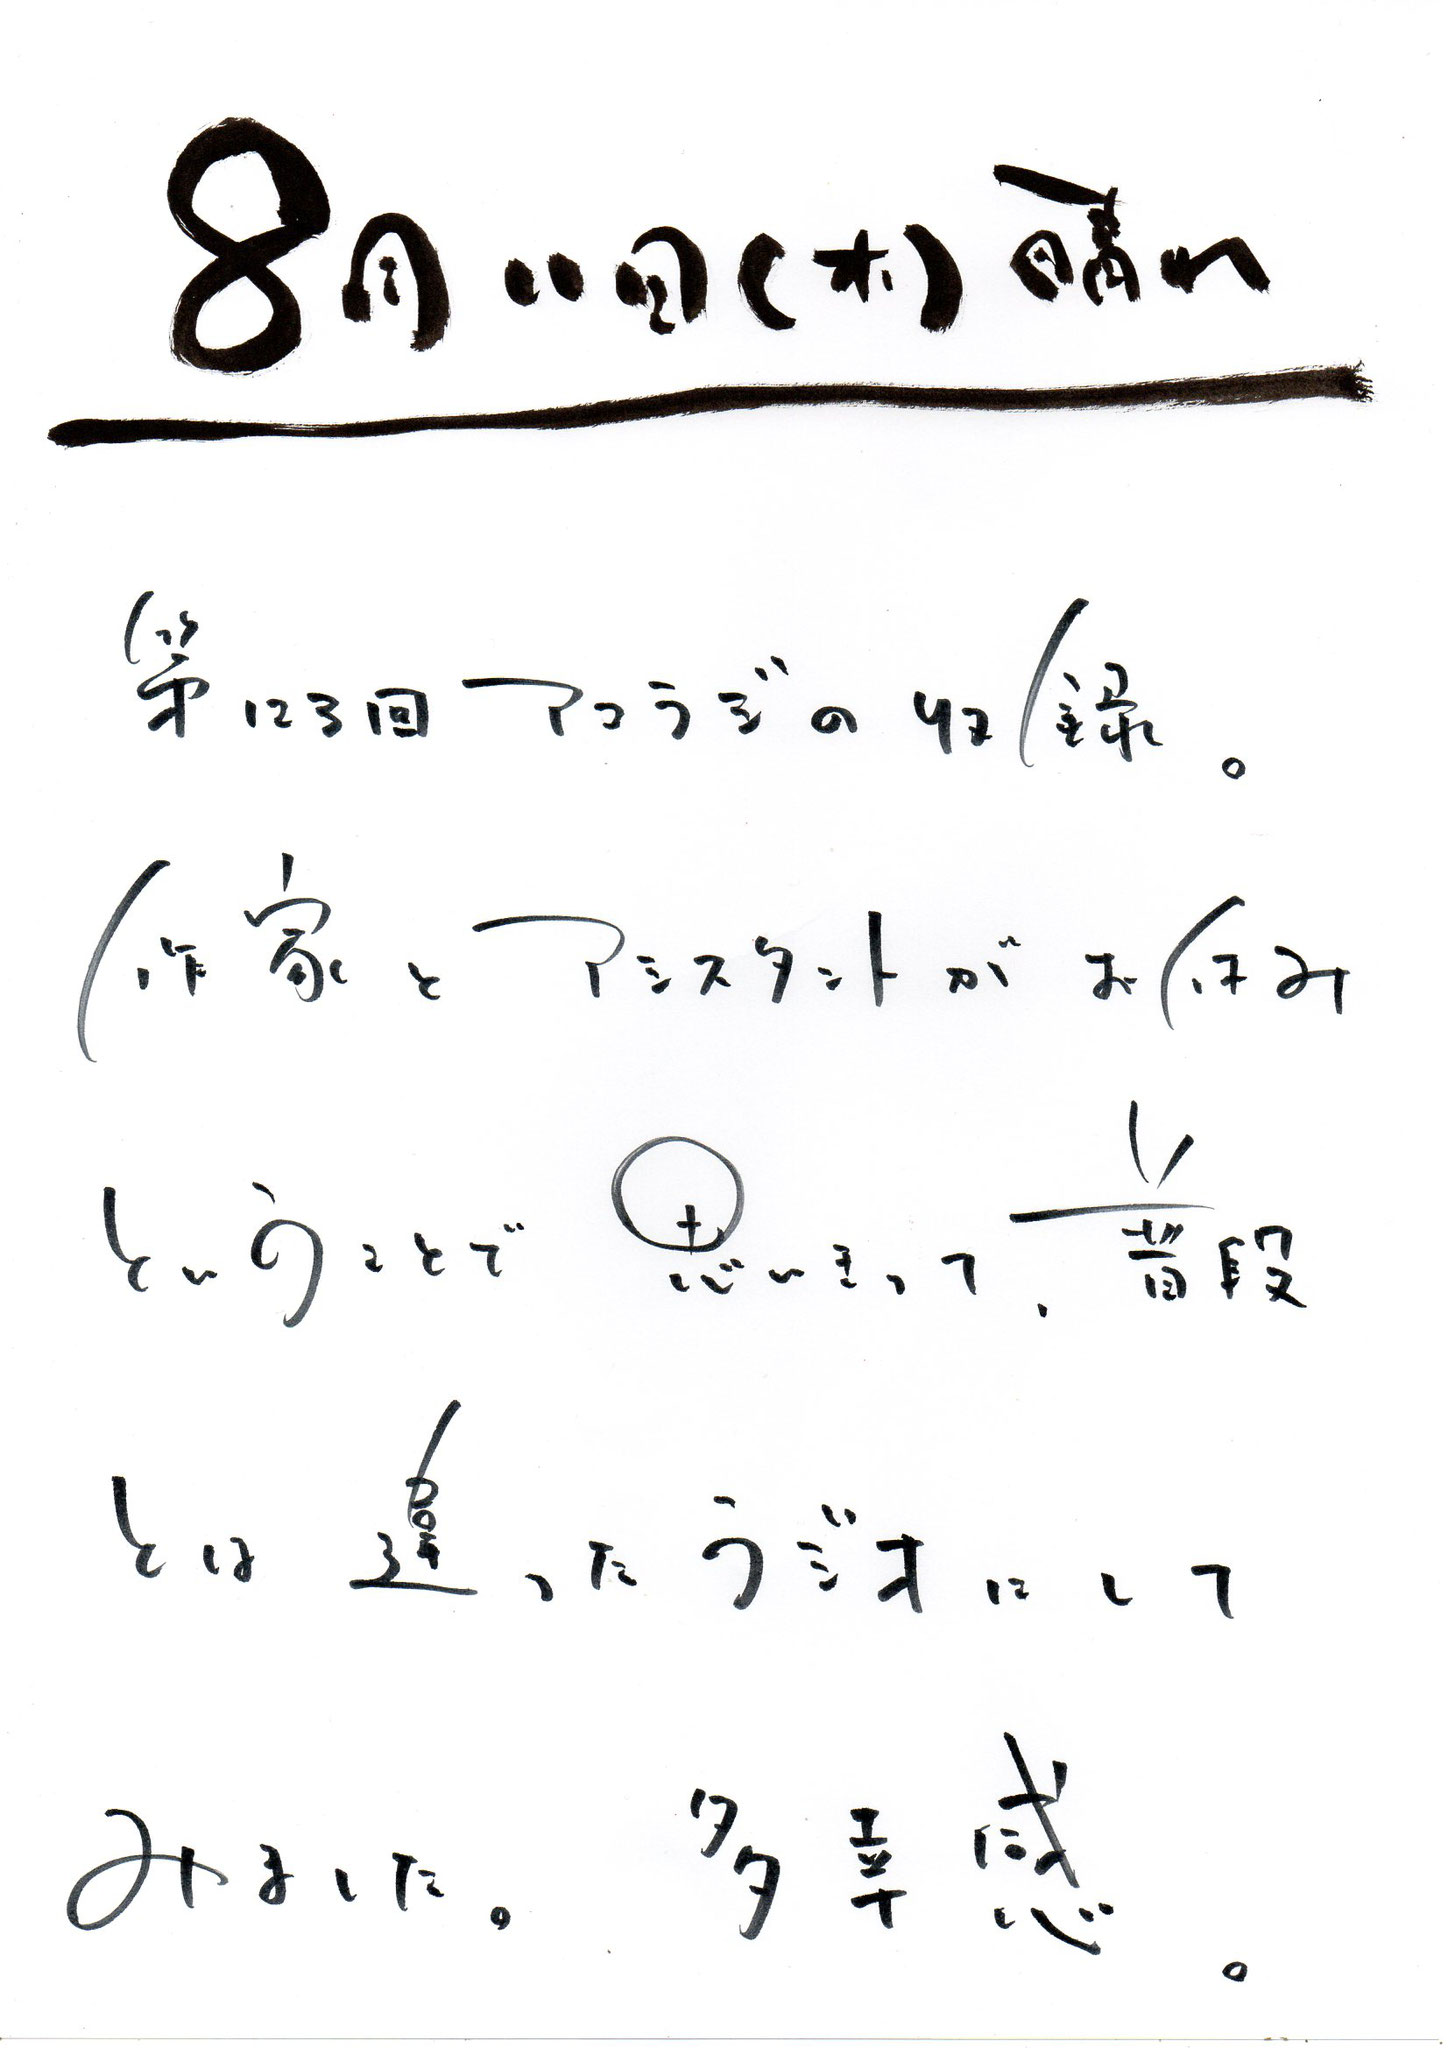 8月11日(木)晴れ
第123回アコラジの収録。
作家とアシスタントがお休み
ということで思いきって、普段
とは違ったラジオにして
みました。多幸感。